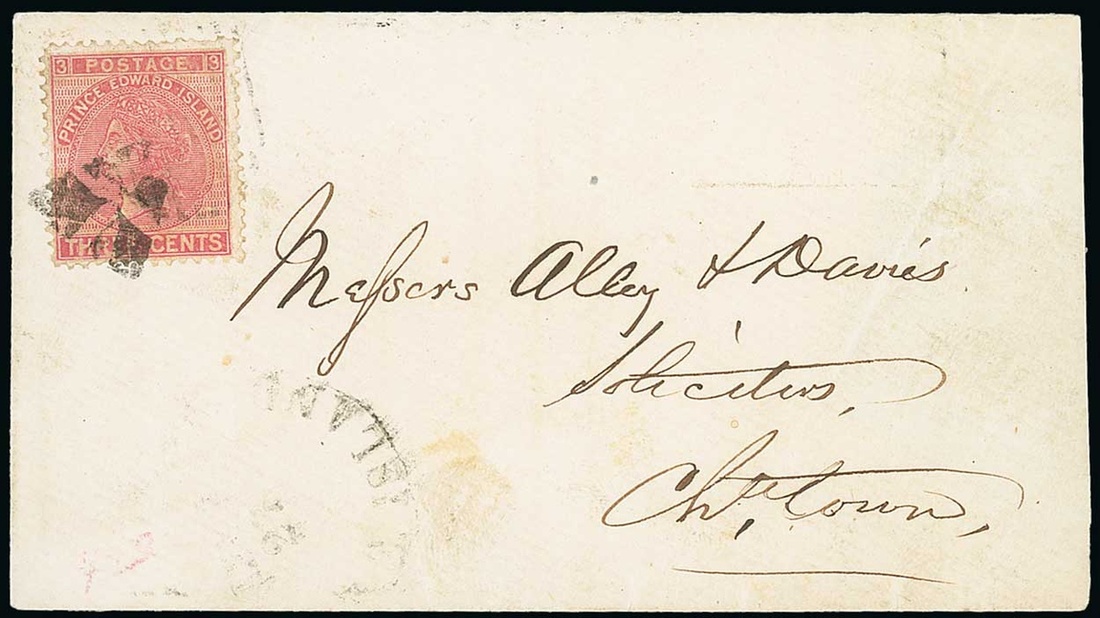 3 POSTAGE 3
PRINCE EDWARD ISLAND
THREE CENTS
Messers Alley & Davies
Solicitors,
Ch. Town,
ISLAND